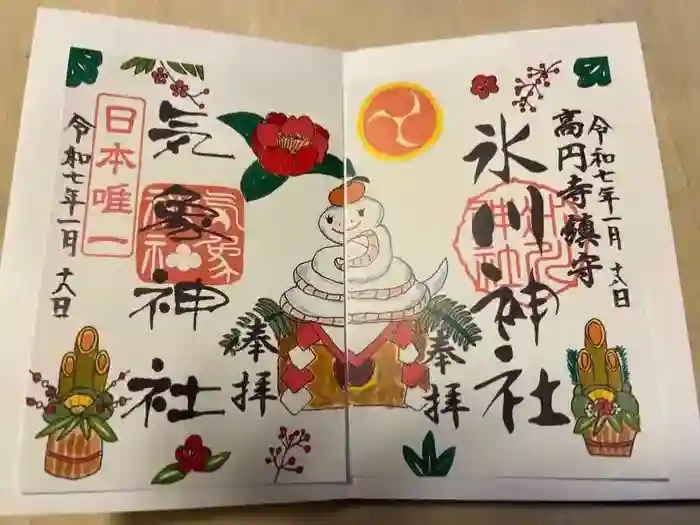 高円寺鎮守
令和七年一月十六日
氷川神社
氷川神社
奉拝
奉拝
気象神社
気象神社
日本唯一
令和七年一月十六日